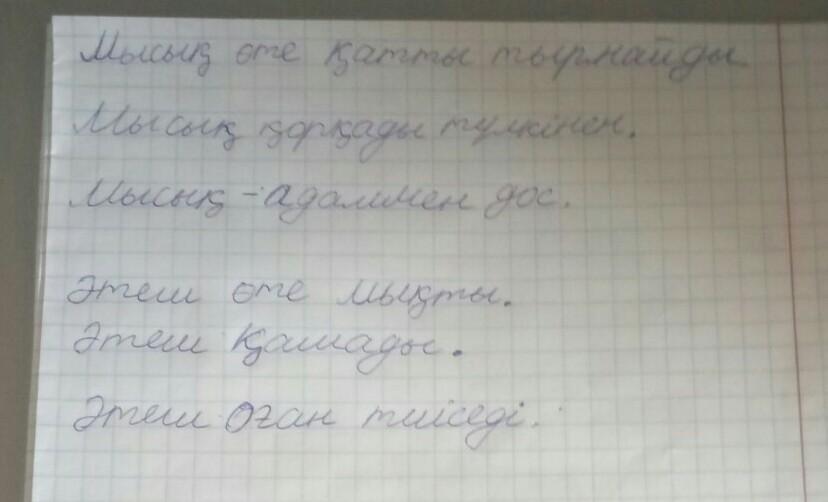 Мысық өте қатты тырнайды
Мысық қорқады түлкінен.
Мысық - адаммен дос.
Әтеш өте мықты.
Әтеш қашады.
Әтеш оған тиіседі.